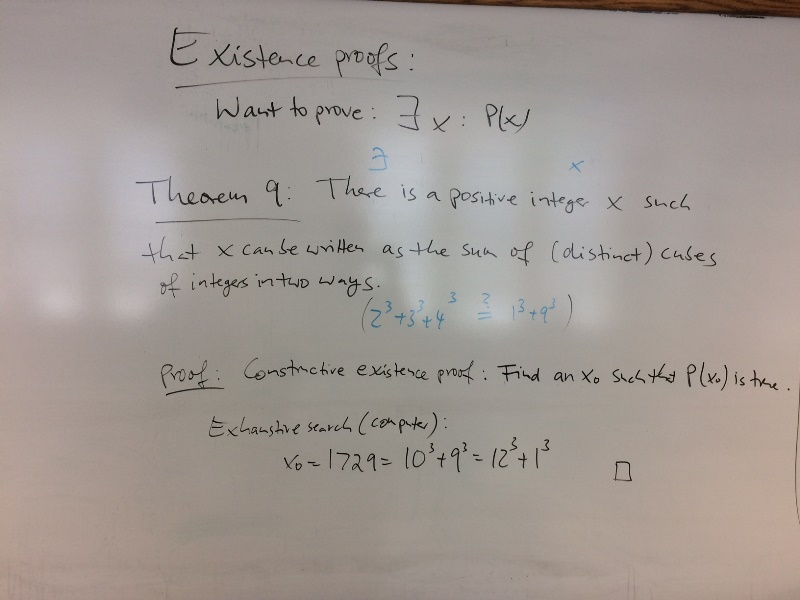 Existence proofs:
Want to prove: ∃ x : P(x)
∃ x
Theorem 9: There is a positive integer x such
that x can be written as the sum of (distinct) cubes
of integers in two ways.
(2³+3³+4³ ≟ 1³+9³)
Proof: Constructive existence proof: Find an x₀ such that P(x₀) is true.
Exhaustive search (computer):
x₀ = 1729 = 10³+9³ = 12³+1³ □